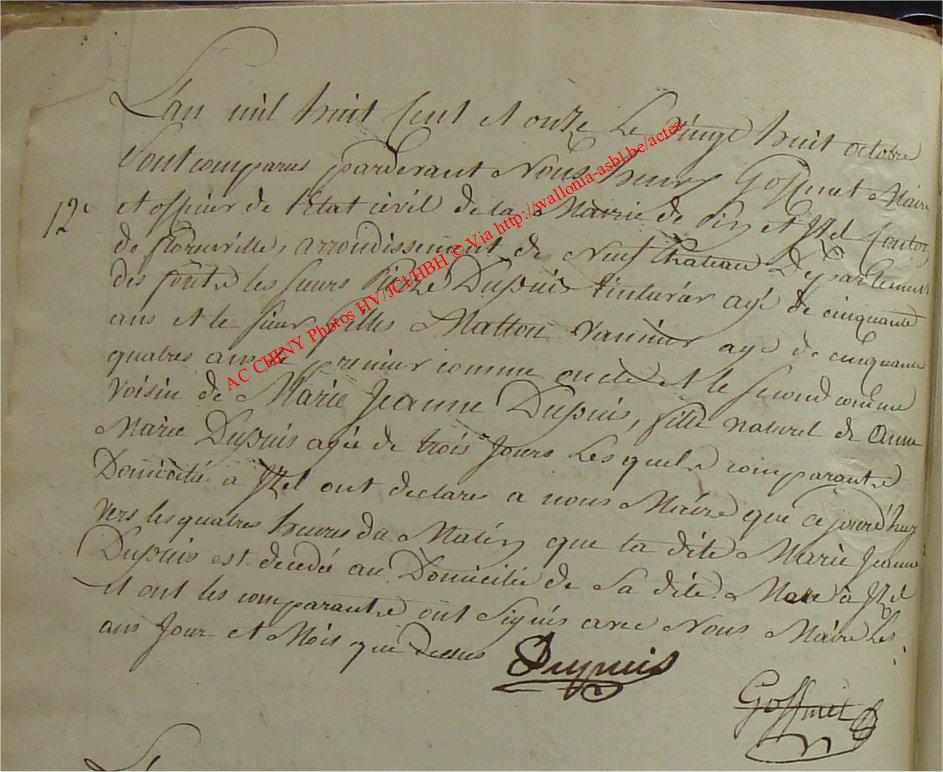 L'an mil huit Cent et onze Le Vingt huit octobre
Sont comparus pardevant Nous henry Goffinet Maire
12e
et officier de l'Etat civil de la Mairie de Pin et Izel Canton
de florenville, arrondissement de Neufchateau Departement
des forêts les sieurs Dupuis tinturier agé de cinquante
ans et le sieur gilles Mathon vannier agé de cinquante
quatres ans le premier comme oncle et le second comme
voisin de Marie Jeanne Dupuis, fille naturel de anne
Marie Dupuis agée de trois Jours Les quels comparants
Domicilié a Izel ont declares a nous Maire que ce jourd'huy
vers les quatres heures du Matin que la dite Marie Jeanne
Dupuis est decedée au Domicilié de sa dite Mere à Izel
et ont les comparants ont signés avec Nous Maire Les
ans Jour et Mois que dessus
Dupuis
Goffinet
AC CHINY Photos HV/JCH/HBH © Via http://wallonia-asbl.be/actes